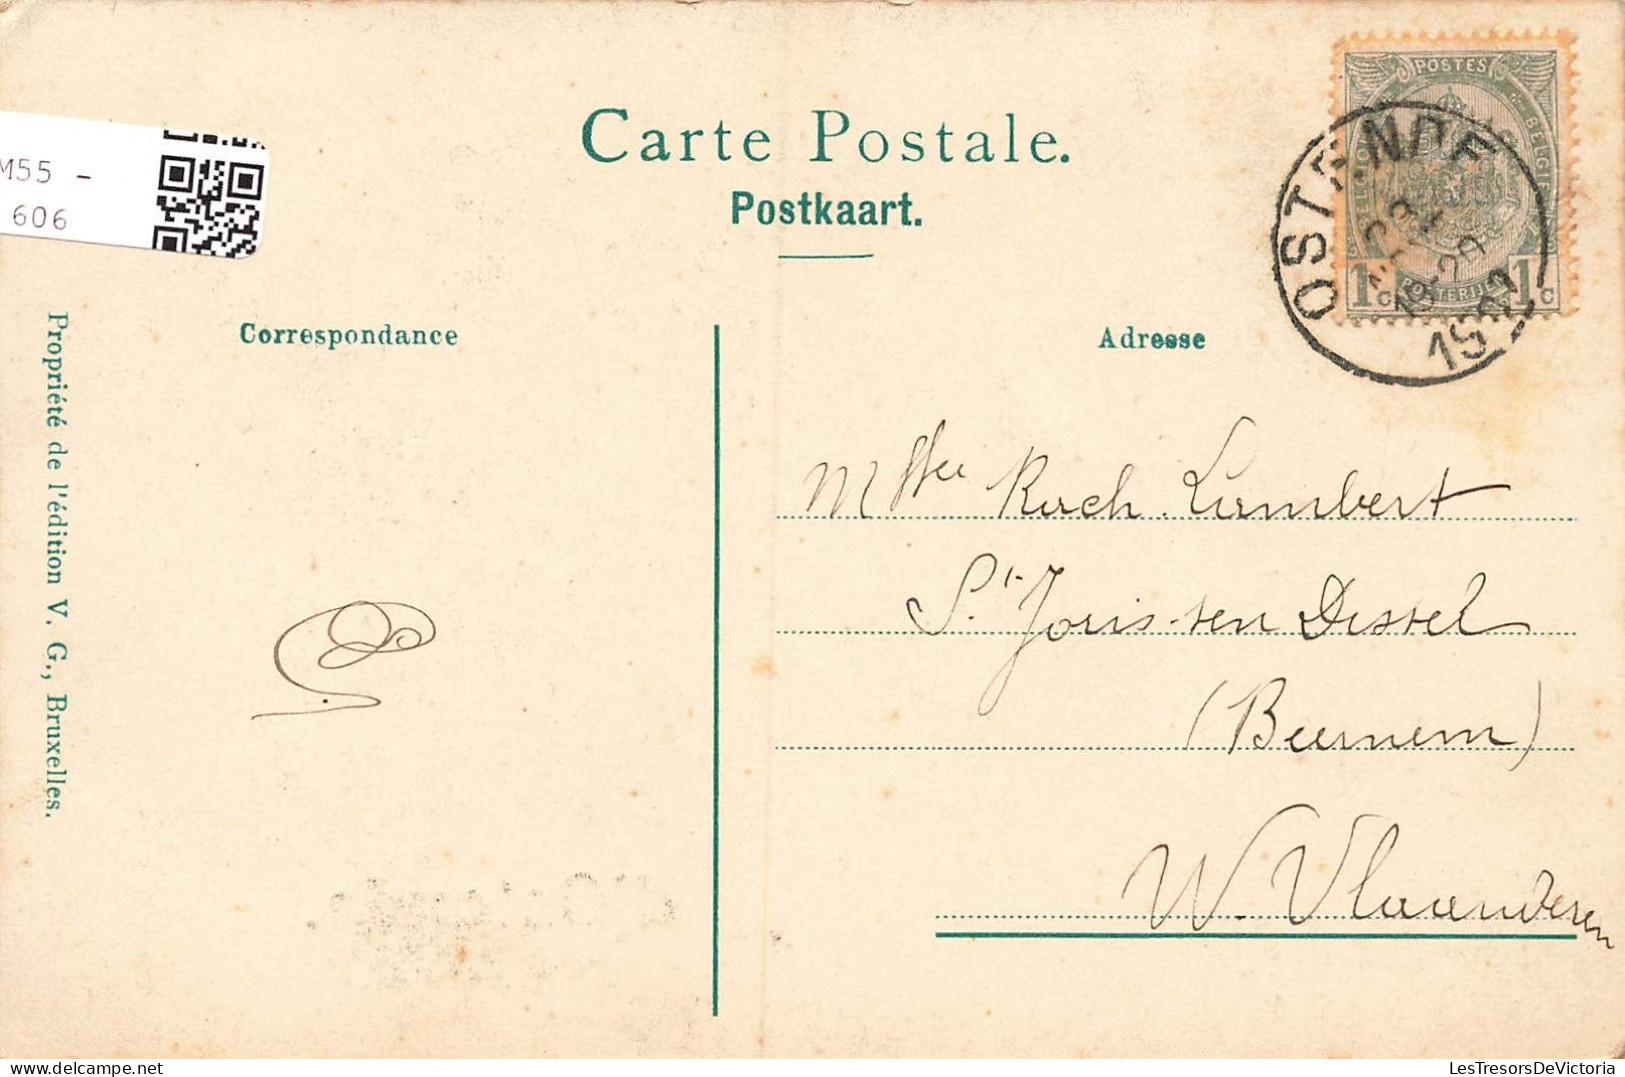 Carte Postale.
Postkaart.
M55 -
606
POSTES
BELGIË
1 C
POSTERIJEN
1 C
OSTENDE
Propriété de l'édition V. G., Bruxelles.
Correspondance
Adresse
Lambert
St. Joris-ten Distel
(Beernem)
W. Vlaanderen
LesTresorsDeVictoria